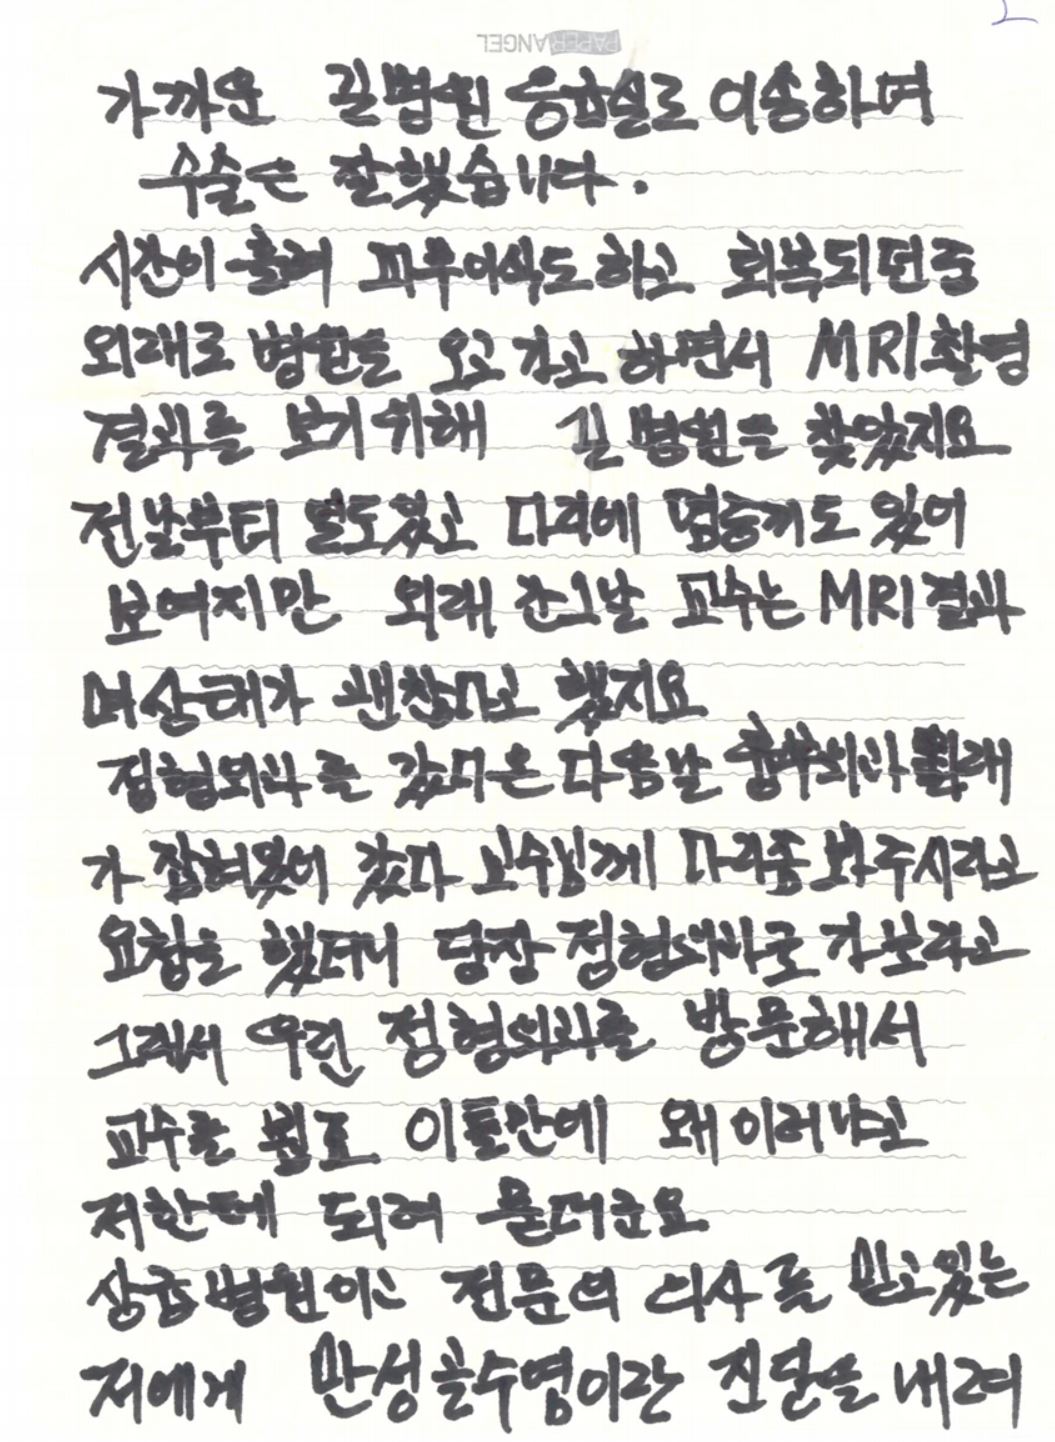 2
PAPER ANGEL
가까운 길병원 응급실로 이송하며
수술은 잘했습니다.
시간이 흘러 피부이식도 하고 회복되던중
외래로 병원을 오고 가고 하면서 MRI촬영
결과를 보기위해 길병원을 찾았지요
전날부터 열도있고 다리에 염증끼도 있어
보여지만 외래 간그날 교수는 MRI결과
며상태가 괜찮다고 했지요
정형외과를 갔다온 다음날 흉부외과 외래
가 잡혀있어 갔다 교수님께 다리좀 봐주시라고
요청을 했더니 당장 정형외과로 가보라고
그래서 우린 정형외과를 방문해서
교수를 뵙고 이틀만에 왜이러냐고
저한테 되려 묻더군요
상급병원이고 전문의 의사를 믿고있는
저에게 만성골수염이란 진단을 내려